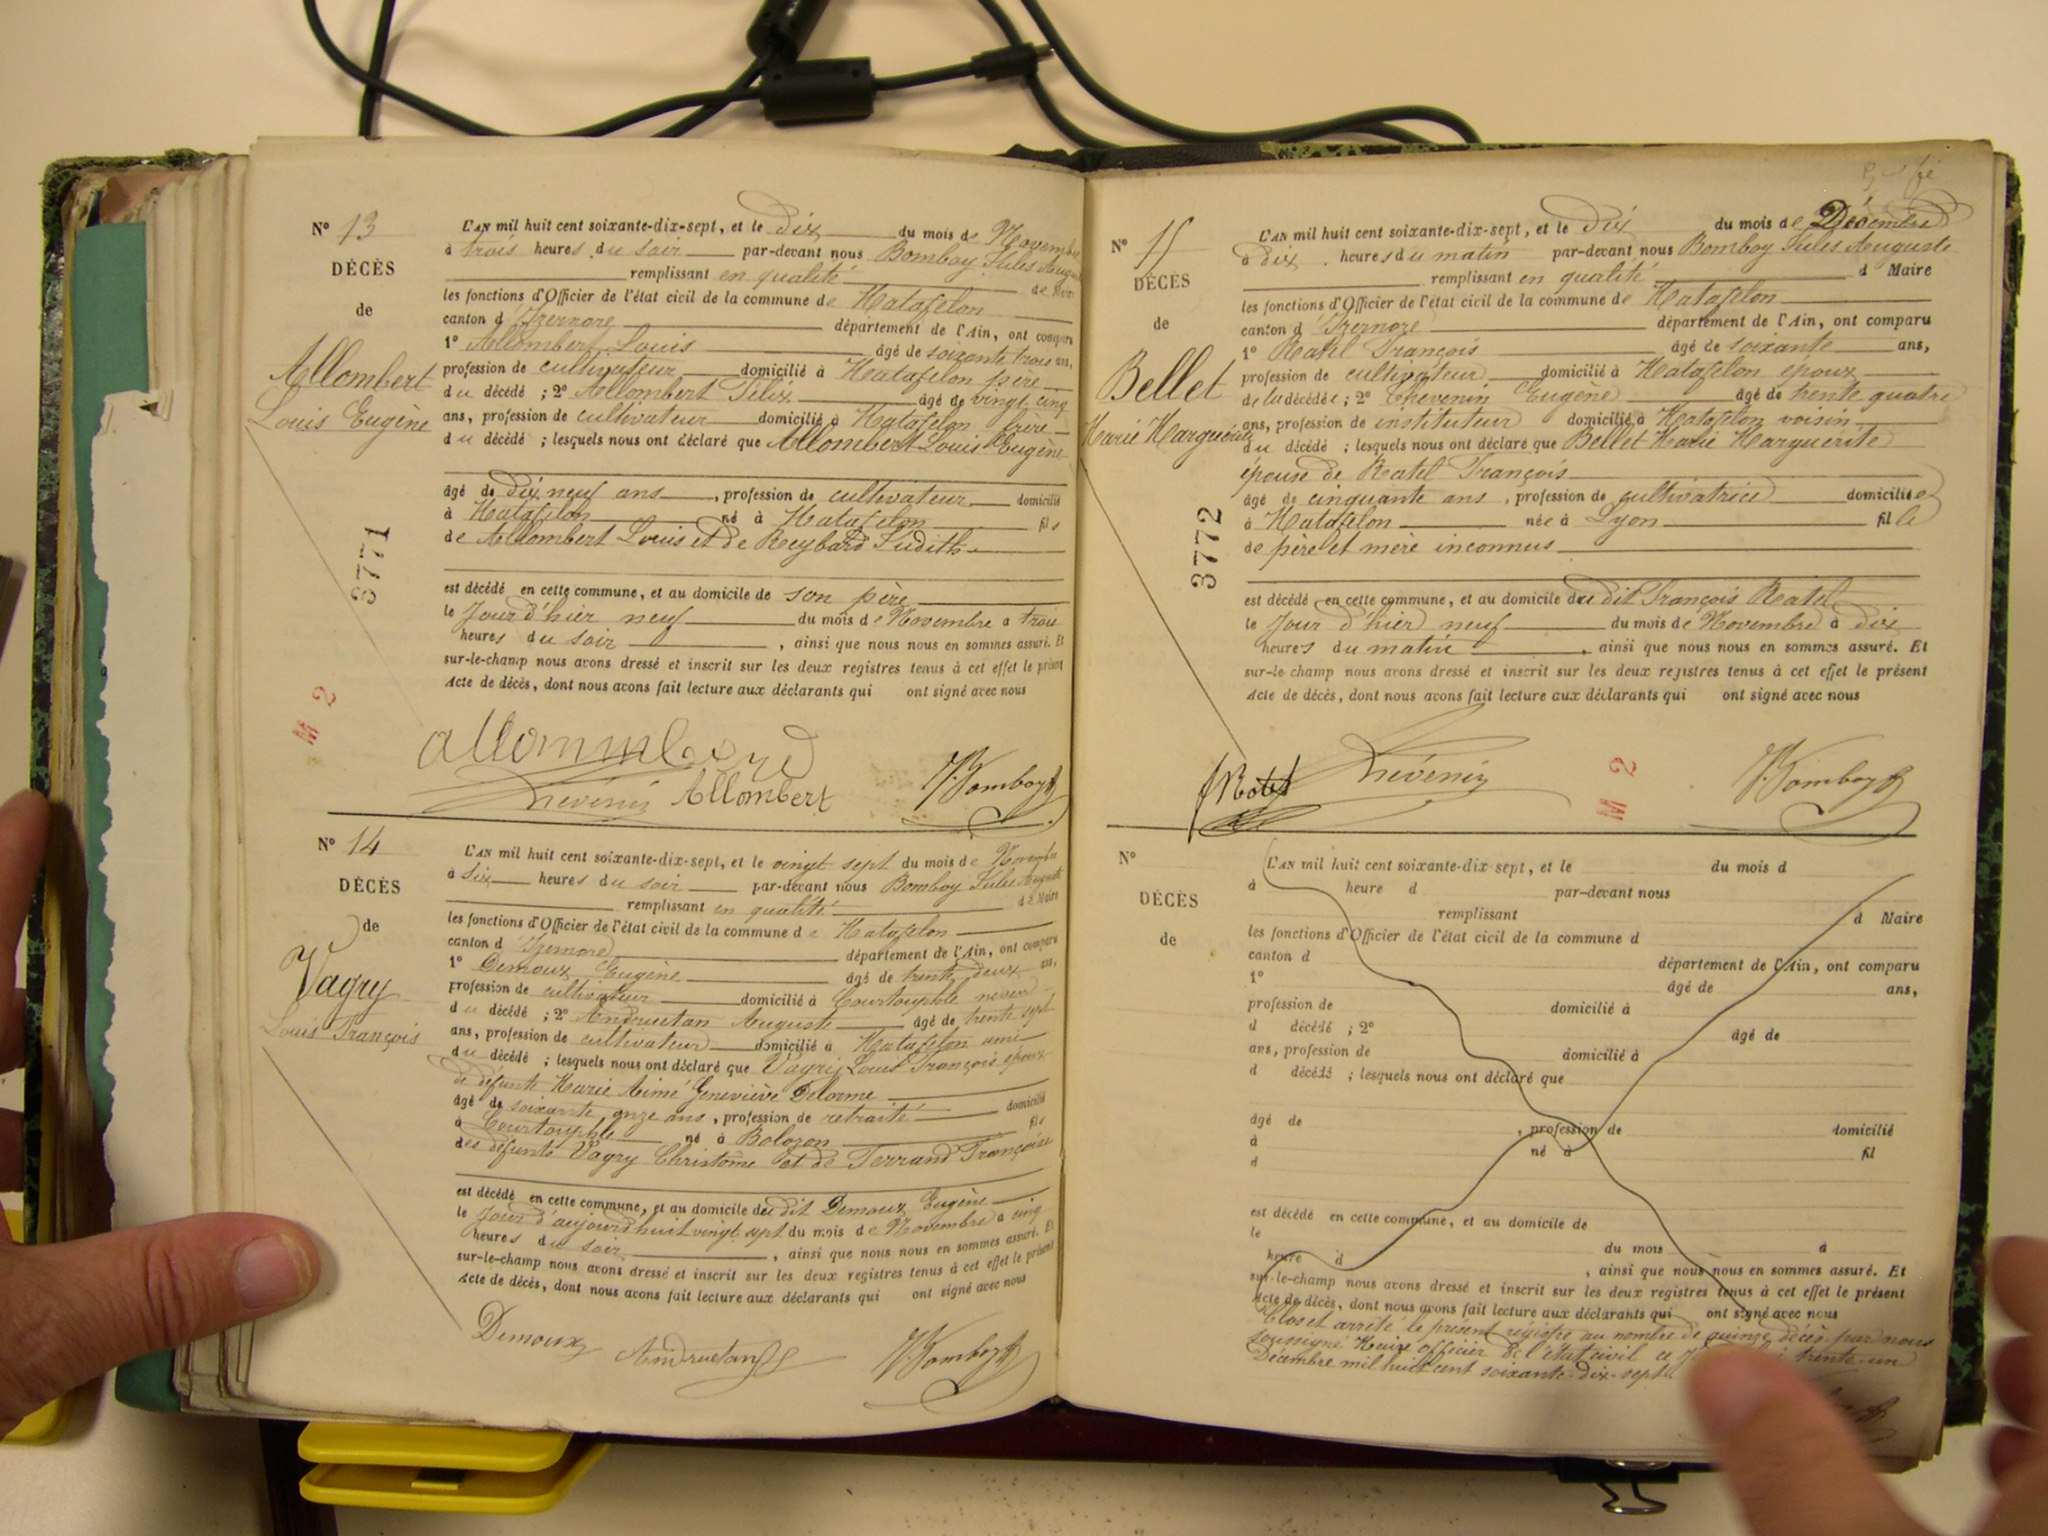 Nº 13
DÉCÈS
de
Allombert
Louis Eugène
3771
M 2
L'AN mil huit cent soixante-dix-sept, et le dix du mois de Novembre
à trois heures du soir par-devant nous Bomboy Jules
remplissant en qualité de
les fonctions d'Officier de l'état civil de la commune de Matafelon
canton d'Izernore département de l'Ain, ont comparu
1º Allombert Louis âgé de soixante trois ans,
profession de cultivateur domicilié à Matafelon père
du décédé ; 2º Allombert Félix âgé de vingt cinq
ans, profession de cultivateur domicilié à Matafelon frère
du décédé ; lesquels nous ont déclaré que Allombert Louis Eugène
âgé de dix neuf ans, profession de cultivateur domicilié
à Matafelon né à Matafelon fils
de Allombert Louis et de Reybard Judith
est décédé en cette commune, et au domicile de son père
le Jour d'hier neuf du mois de Novembre à trois
heures du soir, ainsi que nous nous en sommes assuré. Et
sur-le-champ nous avons dressé et inscrit sur les deux registres tenus à cet effet le présent
Acte de décès, dont nous avons fait lecture aux déclarants qui ont signé avec nous
Thévenin Allombert J. Bomboy
Nº 14
DÉCÈS
de
Vagry
Louis François
L'AN mil huit cent soixante-dix-sept, et le vingt sept du mois de Novembre
à six heures du soir par-devant nous Bomboy Jules Auguste
remplissant en qualité de Maire
les fonctions d'Officier de l'état civil de la commune de Matafelon
canton d'Izernore département de l'Ain, ont comparu
1º Demoux Eugène âgé de trente deux ans,
profession de cultivateur domicilié à Courtouphle neveu
du décédé ; 2º Andruetan Auguste âgé de trente sept
ans, profession de cultivateur domicilié à Matafelon ami
du décédé ; lesquels nous ont déclaré que Vagry Louis François époux
de défunte Marie Aimé Geneviève Delorme
âgé de soixante onze ans, profession de retraité domicilié
à Courtouphle né à Bolozon fils
des défunts Vagry Christome et de Ferrand Françoise
est décédé en cette commune, et au domicile du dit Demoux Eugène
le Jour d'aujourd'huit vingt sept du mois de Novembre à cinq
heures du soir, ainsi que nous nous en sommes assuré. Et
sur-le-champ nous avons dressé et inscrit sur les deux registres tenus à cet effet le présent
Acte de décès, dont nous avons fait lecture aux déclarants qui ont signé avec nous
Demoux Andruetan J. Bomboy
Nº 15
DÉCÈS
de
Bellet
Marie Marguérite
3772
L'AN mil huit cent soixante-dix-sept, et le dix du mois de Décembre
à dix heures du matin par-devant nous Bomboy Jules Auguste
remplissant en qualité d Maire
les fonctions d'Officier de l'état civil de la commune de Matafelon
canton d'Izernore département de l'Ain, ont comparu
1º Ratel François âgé de soixante ans,
profession de cultivateur domicilié à Matafelon époux
de la décédée ; 2º Thevenin Eugène âgé de trente quatre
ans, profession de instituteur domicilié à Matafelon voisin
du décédé ; lesquels nous ont déclaré que Bellet Marie Marguérite
épouse de Ratel François
âgé de cinquante ans, profession de cultivatrice domiciliée
à Matafelon née à Lyon fille
de père et mère inconnus
est décédé en cette commune, et au domicile du dit François Ratel
le Jour d'hier neuf du mois de Novembre à dix
heures du matin, ainsi que nous nous en sommes assuré. Et
sur-le-champ nous avons dressé et inscrit sur les deux registres tenus à cet effet le présent
Acte de décès, dont nous avons fait lecture aux déclarants qui ont signé avec nous
f Ratel Thévenin M 2 J. Bomboy
Nº
DÉCÈS
de
L'AN mil huit cent soixante-dix-sept, et le du mois d
à heure d par-devant nous
remplissant d Maire
les fonctions d'Officier de l'état civil de la commune d
canton d département de l'Ain, ont comparu
1º âgé de ans,
profession de domicilié à
d décédé ; 2º âgé de
ans, profession de domicilié à
d décédé ; lesquels nous ont déclaré que
âgé de , profession de domicilié
à né à fil
d
est décédé en cette commune, et au domicile de
le du mois à
heure d , ainsi que nous nous en sommes assuré. Et
sur-le-champ nous avons dressé et inscrit sur les deux registres tenus à cet effet le présent
Acte de décès, dont nous avons fait lecture aux déclarants qui ont signé avec nous
Clos et arrêté le présent régistre au nombre de quinze décès par nous
soussigné Maire officier de l'état civil ce trente un
Décembre mil huit cent soixante-dix-sept